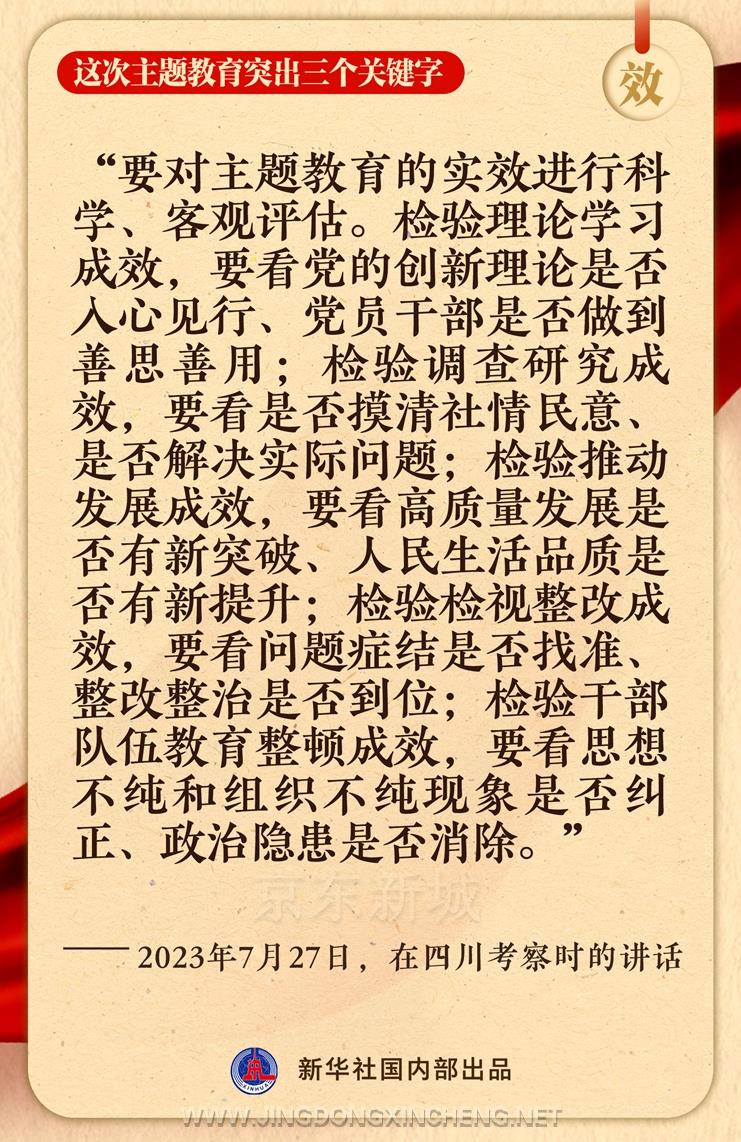 这次主题教育突出三个关键字
效
“要对主题教育的实效进行科
学、客观评估。检验理论学习
成效，要看党的创新理论是否
入心见行、党员干部是否做到
善思善用；检验调查研究成
效，要看是否摸清社情民意、
是否解决实际问题；检验推动
发展成效，要看高质量发展是
否有新突破、人民生活品质是
否有新提升；检验检视整改成
效，要看问题症结是否找准、
整改整治是否到位；检验干部
队伍教育整顿成效，要看思想
不纯和组织不纯现象是否纠
正、政治隐患是否消除。”
京东新城
——2023年7月27日，在四川考察时的讲话
XINHUA
新华社国内部出品
WWW.JINGDONGXINCHENG.NET